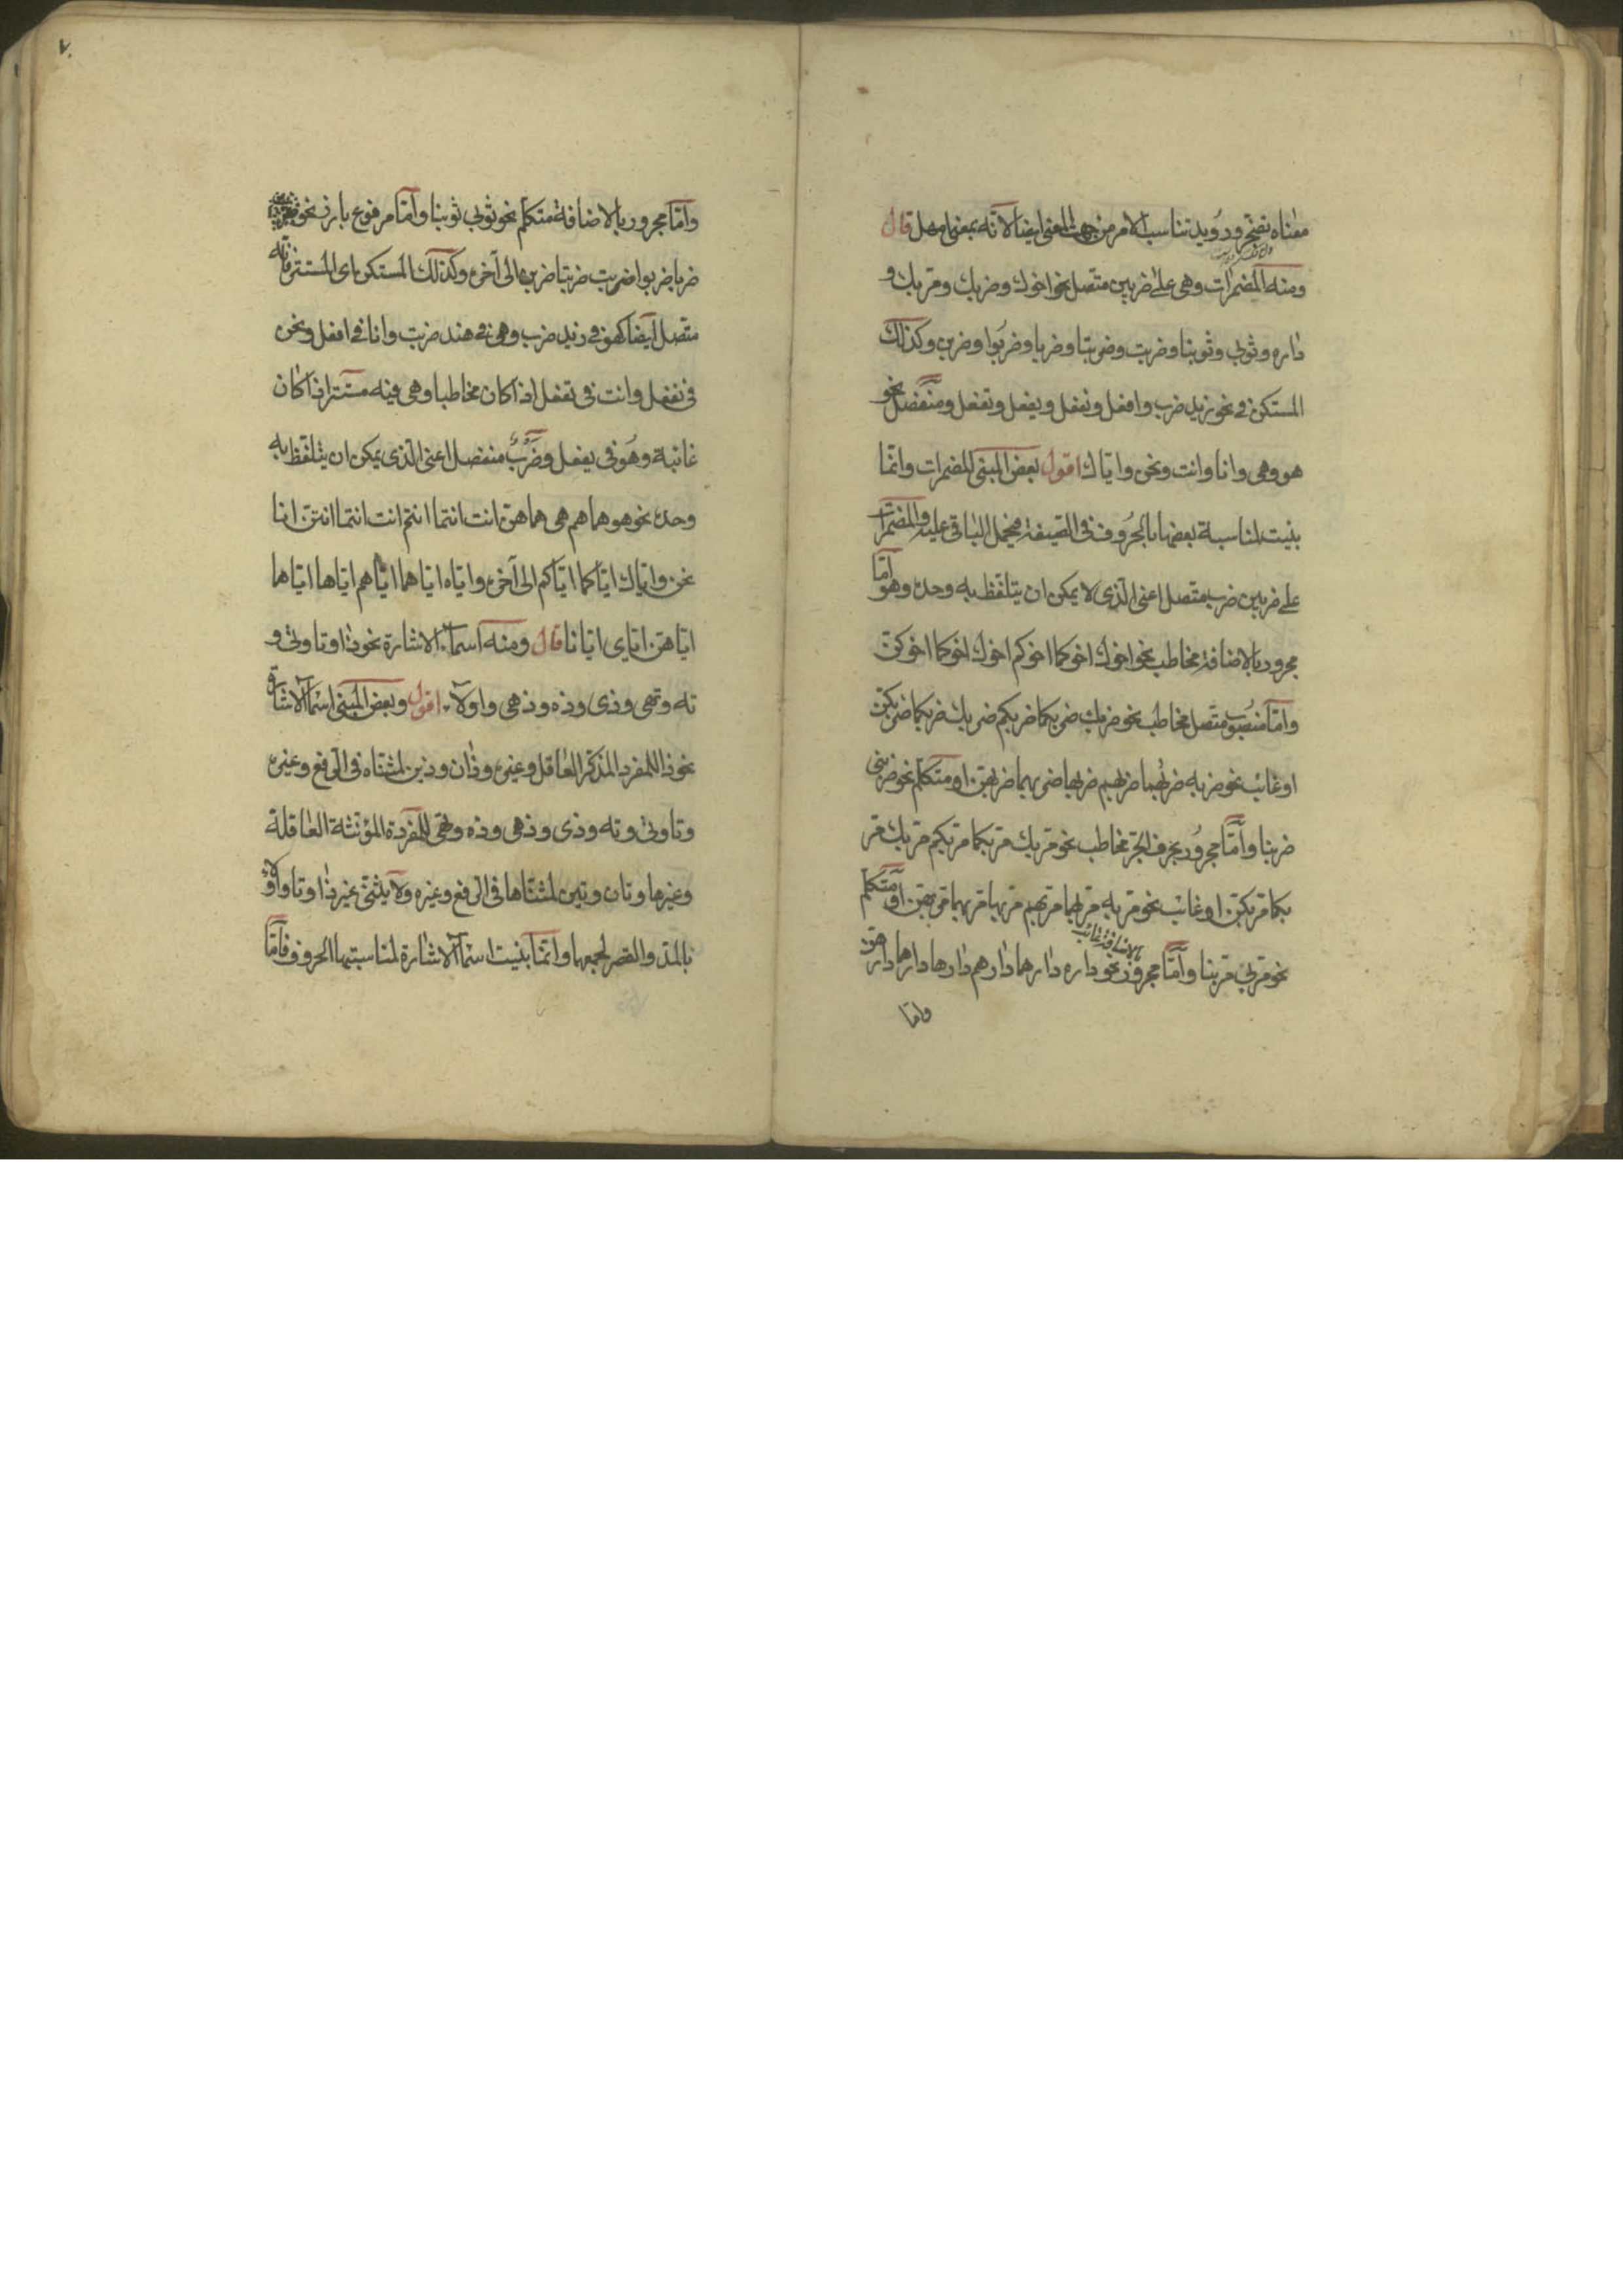 معناه تضجر ورُويد تناسب الامر من جهة المعنى ايضا لانّه بمعنى امهل قال
ومنه المضمرات وهى على ضربين متصل نحو اخوك وضربك ومرّبك و
داره وثوبى وثوبنا وضربت وضربتا وضربا وضربُوا وضربن وكذلك
المستكن فى نحو زيد ضرب وافعل ونفعل ويفعل وتفعل ومنفصل نحو
هو وهى وانا وانت ونحن واياك اقول بعض المبنى المضمرات وانّما
بنيت لمناسبة بعضها بالحُروف فى الصيغة فيحمل الباقى عليه والمضمرات
على ضربين ضرب متصل اعنى الّذى لا يمكن ان يتلفّظ به وحده وهو امّا
مجرور بالاضافة مخاطب نحو اخوك اخوكما اخوكم اخوك اخوكما اخوكنّ
وامّا منصُوب متّصل مخاطب نحو ضربك ضربكما ضربكم ضربك ضربكما ضربكنّ
او غائب نحو ضربه ضربهُما ضربهم ضربها ضربهما ضربهنّ او متكلّم نحو ضربنى
ضربنا وامّا مجرُور بحرف الجرّ مخاطب نحو مرّبك مرّبكما مرّبكم مرّبك مرّ
بكما مرّبكنّ او غائب نحو مرّبه مرّبهما مرّبهم مرّبها مرّبهما مرّبهنّ او متكلّم
بالاضافة غائب
نحو مرّبى مرّبنا وامّا مجرور نحو داره دارهما دارهم دارها دارهما دارهنّ
وامّا
٧٠
وامّا مجرور بالاضافة متكلّم نحو ثوبى ثوبنا وامّا مرفوع بارز نحو
ضربا ضربوا ضربت ضربتا ضربن الى آخره وكذلك المستكن اى المستتر فانّه
متّصل ايضا كهو فى زيد ضرب وهى فى هند ضربت وانا فى افعل ونحن
فى نفعل وانت فى تفعل اذا كان مخاطبا وهى فيه مستتر اذا كان
غائبة وهُو فى يفعل وضَربٌ منفصل اعنى الّذى يمكن ان يتلفّظ به
وحده نحو هو هما هم هى هما هنّ انت انتما انتم انت انتما انتنّ انا
نحن واياك ايّاكما ايّاكم الى آخره وايّاه ايّاهما ايّاهم ايّاها ايّاهما
ايّاهنّ ايّاى ايّانا قال ومنه اسماء الاشارة نحو ذا وتا وتى و
ته وتهى وذى وذه وذهى واولاء اقول وبعض المبنى اسماء الاشارة
نحو ذا للمفرد المذكّر العاقل وغيره وذان وذين لمثنّاه فى الرفع وغيره
وتا وتى وته وذى وذهى وذه وتهى للمفردة المؤنثة العاقلة
وغيرها وتان وتين لمثنّاها فى الرفع وغيره ولا يثنّى غير ذا وتا واولاء
بالمدّ والقصر لجمعهما وانّما بنيت اسماء الاشارة لمناسبتها الحروف فامّا